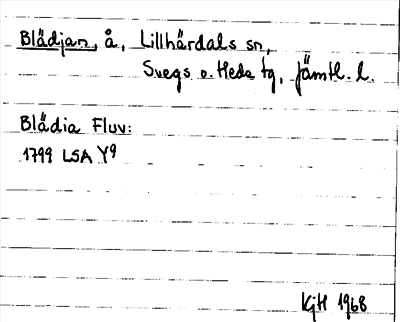 Blädjan, å, Lillhärdals sn,
Svegs o. Heds tg, Jämtl. l.
Blädia Fluv:
1799 LSA Y9
KjH 1968